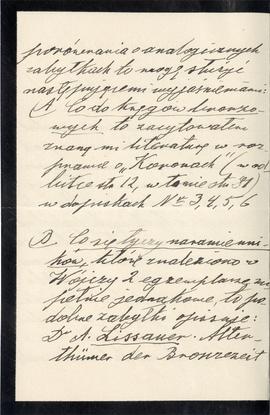 porównania o analogicznych
zabytkach to mogę służyć
następującemi wyjaśnieniami:
A Co do kręgów bronzo-
wych to zacytowałem
znaną mi literaturę w roz
prawie o „Koronach" (w od
bitce str 12, w tomie str 31)
w dopiskach Nr 3, 4, 5, 6
B. Co się tyczy naramienni-
ków, które znaleziono w
Wójczy 2 egzemplarze zu
pełnie jednakowe, to po
dobne zabytki opisuje:
Dr A. Lissauer. Alter-
thümer der Bronzezeit